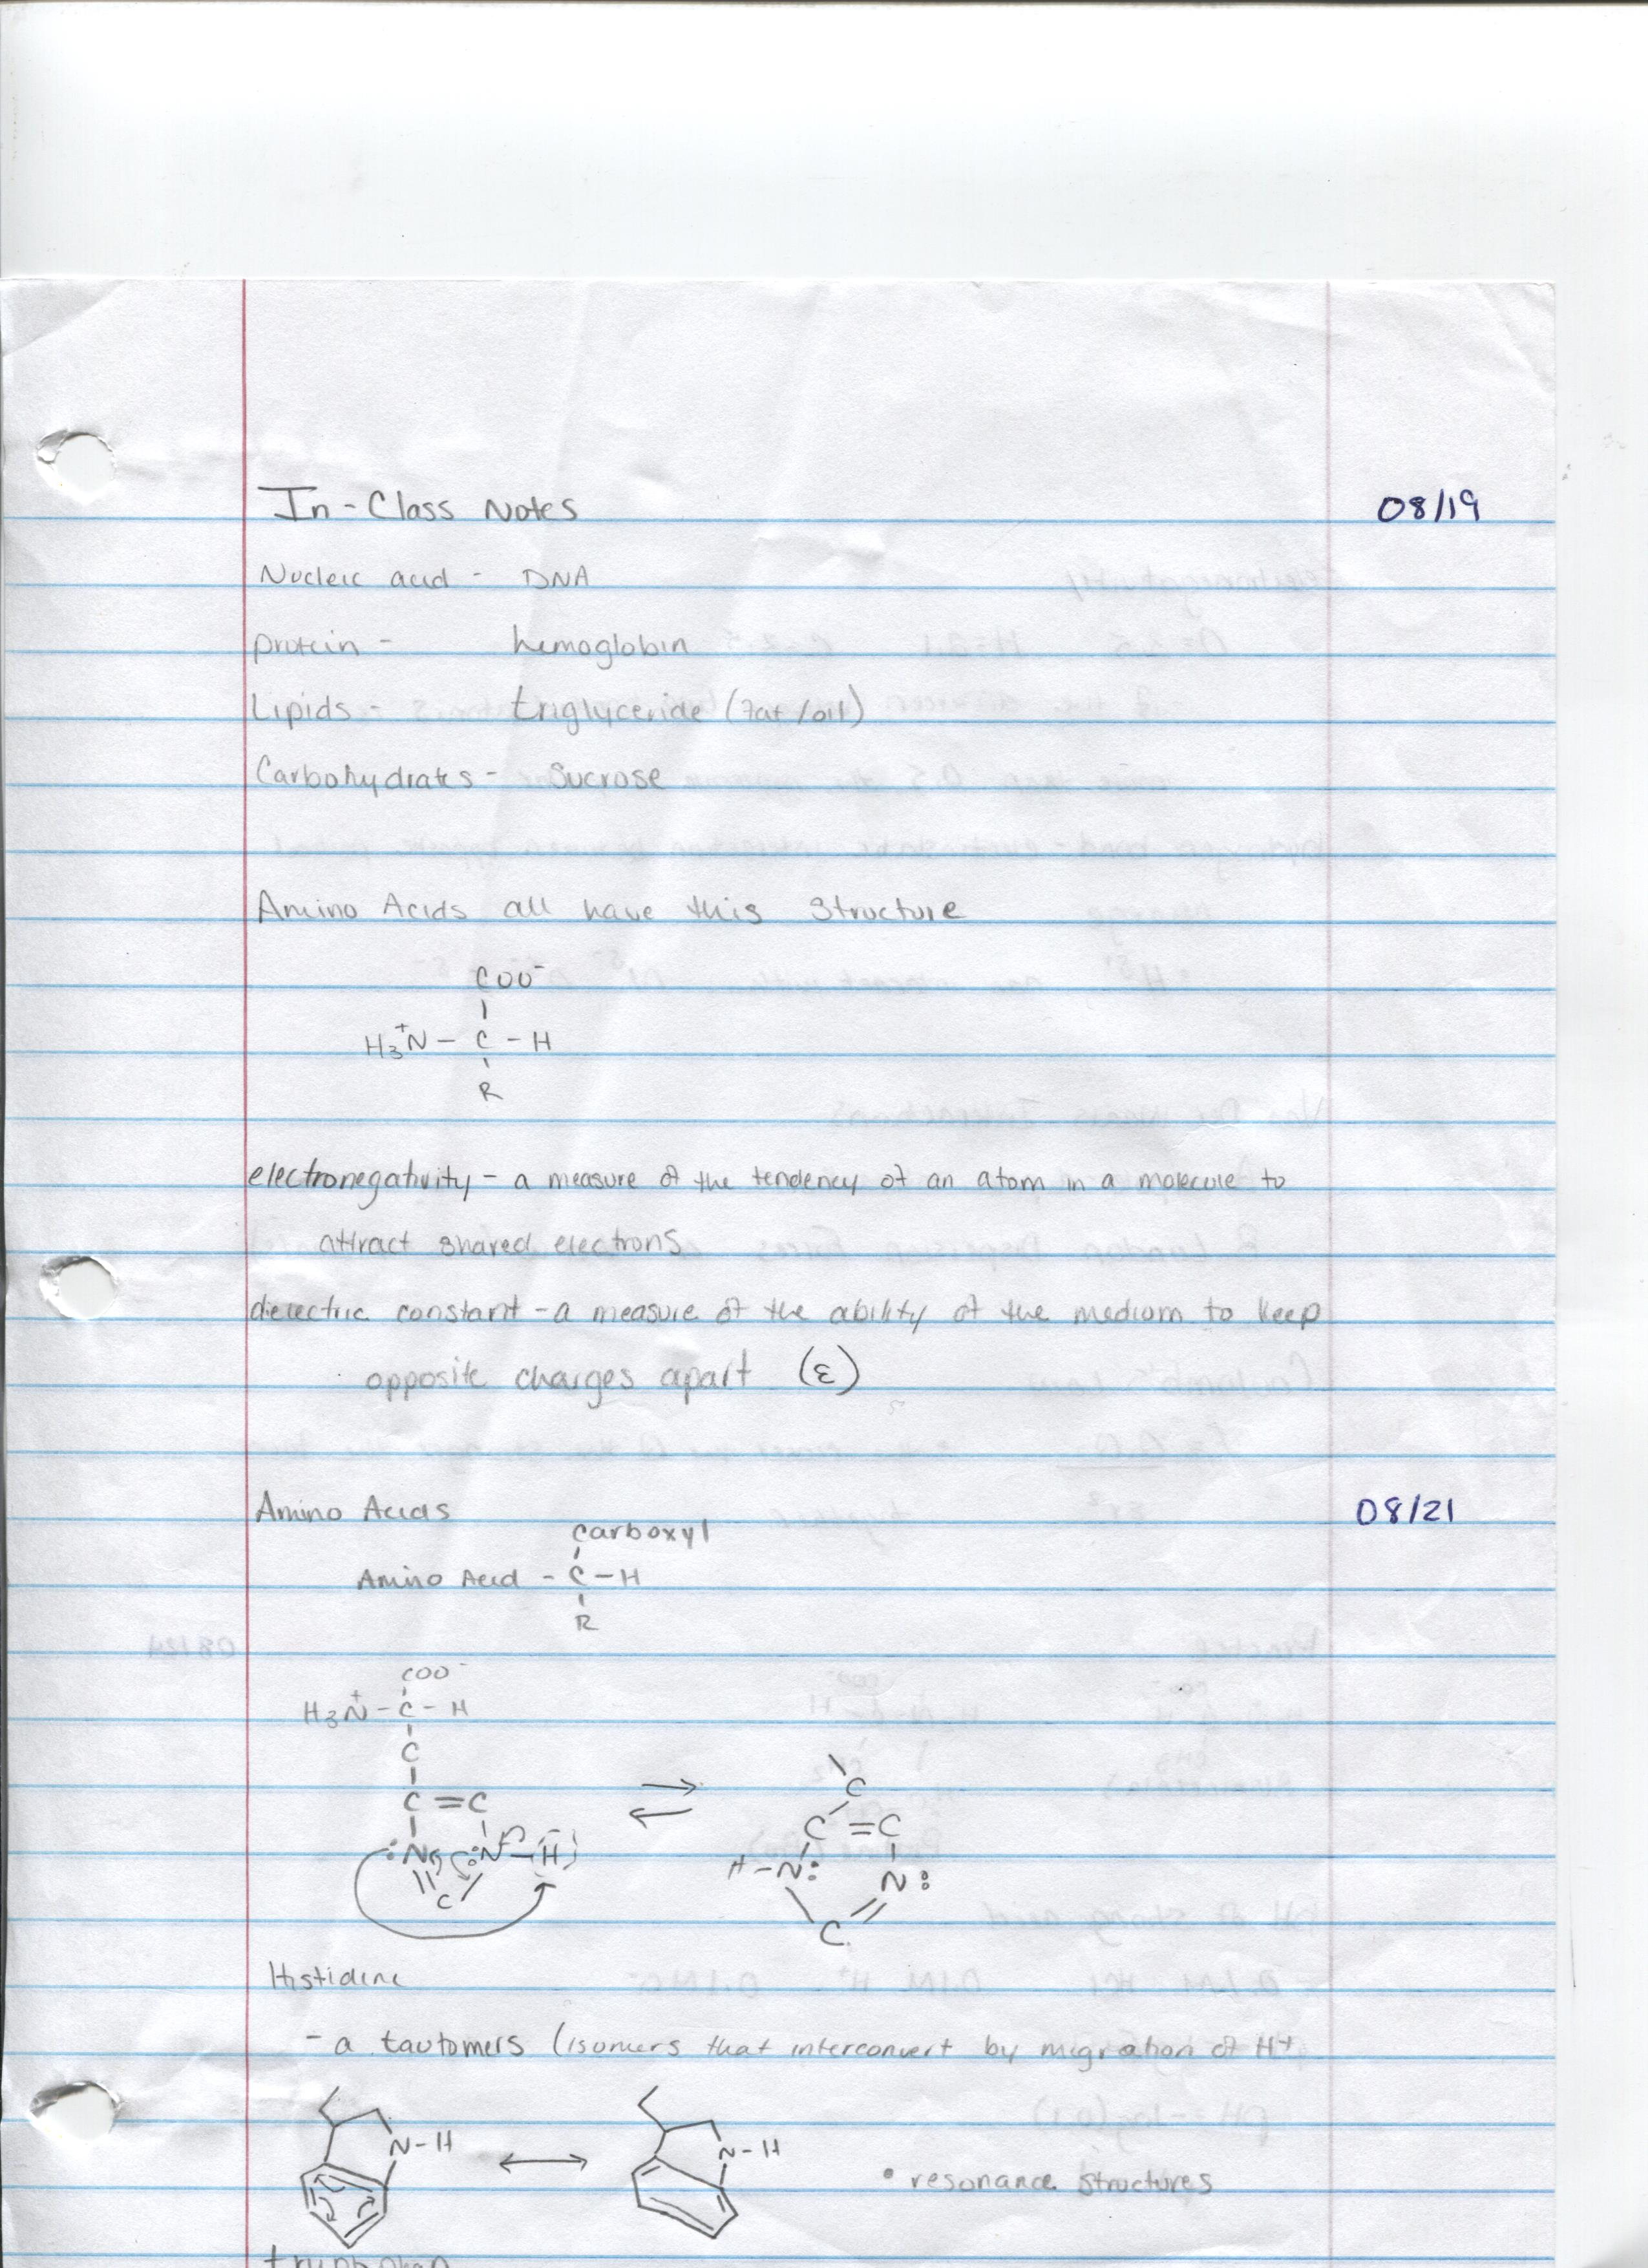 In-Class Notes 08/19
Nucleic acid - DNA
protein - hemoglobin
Lipids - triglyceride (fat/oil)
Carbohydrates - Sucrose
Amino Acids all have this structure
COO⁻
H₃N⁺ - C - H
R
electronegativity - a measure of the tendency of an atom in a molecule to
attract shared electrons
dielectric constant - a measure of the ability of the medium to keep
opposite charges apart (ε)
Amino Acids 08/21
carboxyl
Amino Acid - C - H
R
COO⁻
H₃N⁺ - C - H
C
C
C = C
C = C
:N :N - H
H - N: N:
C
C
Histidine
- a tautomers (isomers that interconvert by migration of H+
N-H
N-H
• resonance structures
tryptophan